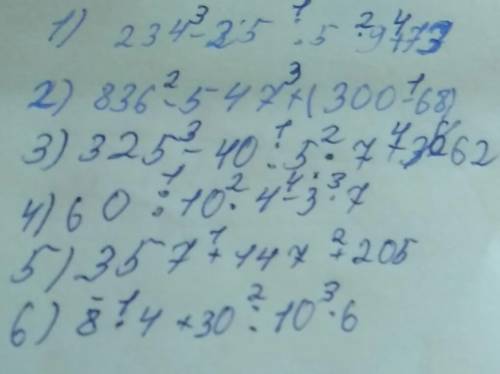 1) 234 ³- 25 ¹: 5 ²· 9 ⁴+ 73
2) 836 ²- 547 ³+ (300 ¹- 68)
3) 325 ³- 40 ¹: 5 ²· 7 ⁴+ 262
4) 60 ¹: 10 ²· 4 ⁴- 3 ³· 7
5) 357 ¹+ 147 ²+ 205
6) 8 ¹· 4 + 30 ²: 10 ³· 6